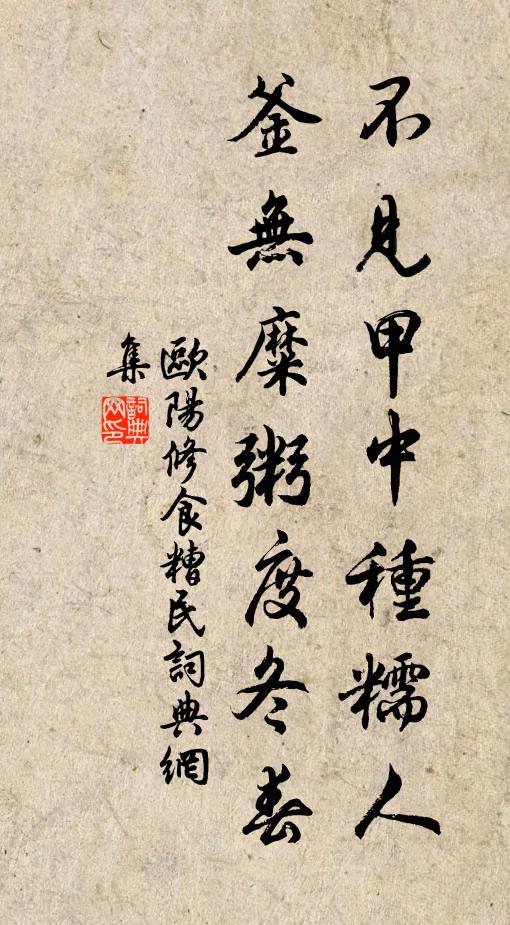 不見甲中種糯人
釜無糜粥度冬春
歐陽修食糟民詞典網
集
詞典
网印